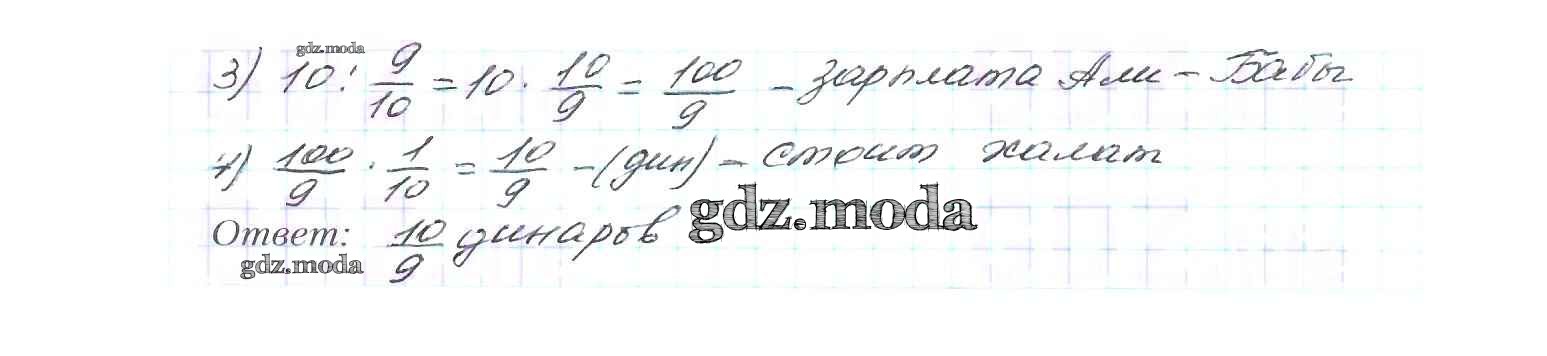 gdz.moda
3) 10 : 9/10 = 10 · 10/9 = 100/9 – зарплата Али – Бабы
4) 100/9 · 1/10 = 10/9 – (дин) – стоит халат
Ответ: 10/9 динаров gdz.moda
gdz.moda